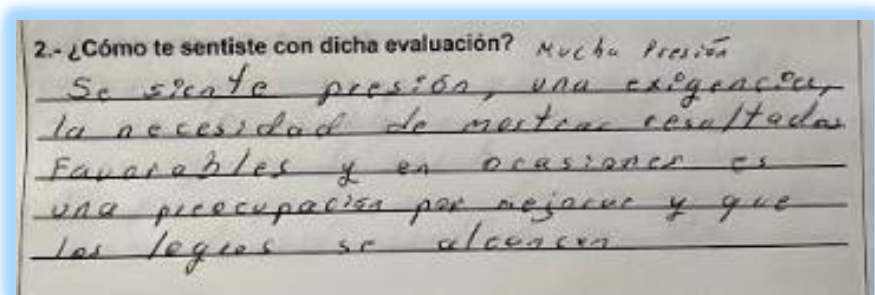 2.- ¿Cómo te sentiste con dicha evaluación? Mucha Presión
Se siente presión, una exigencia,
la necesidad de mostrar resultados
Favorables y en ocasiones es
una preocupación por mejorar y que
los logros se alcancen